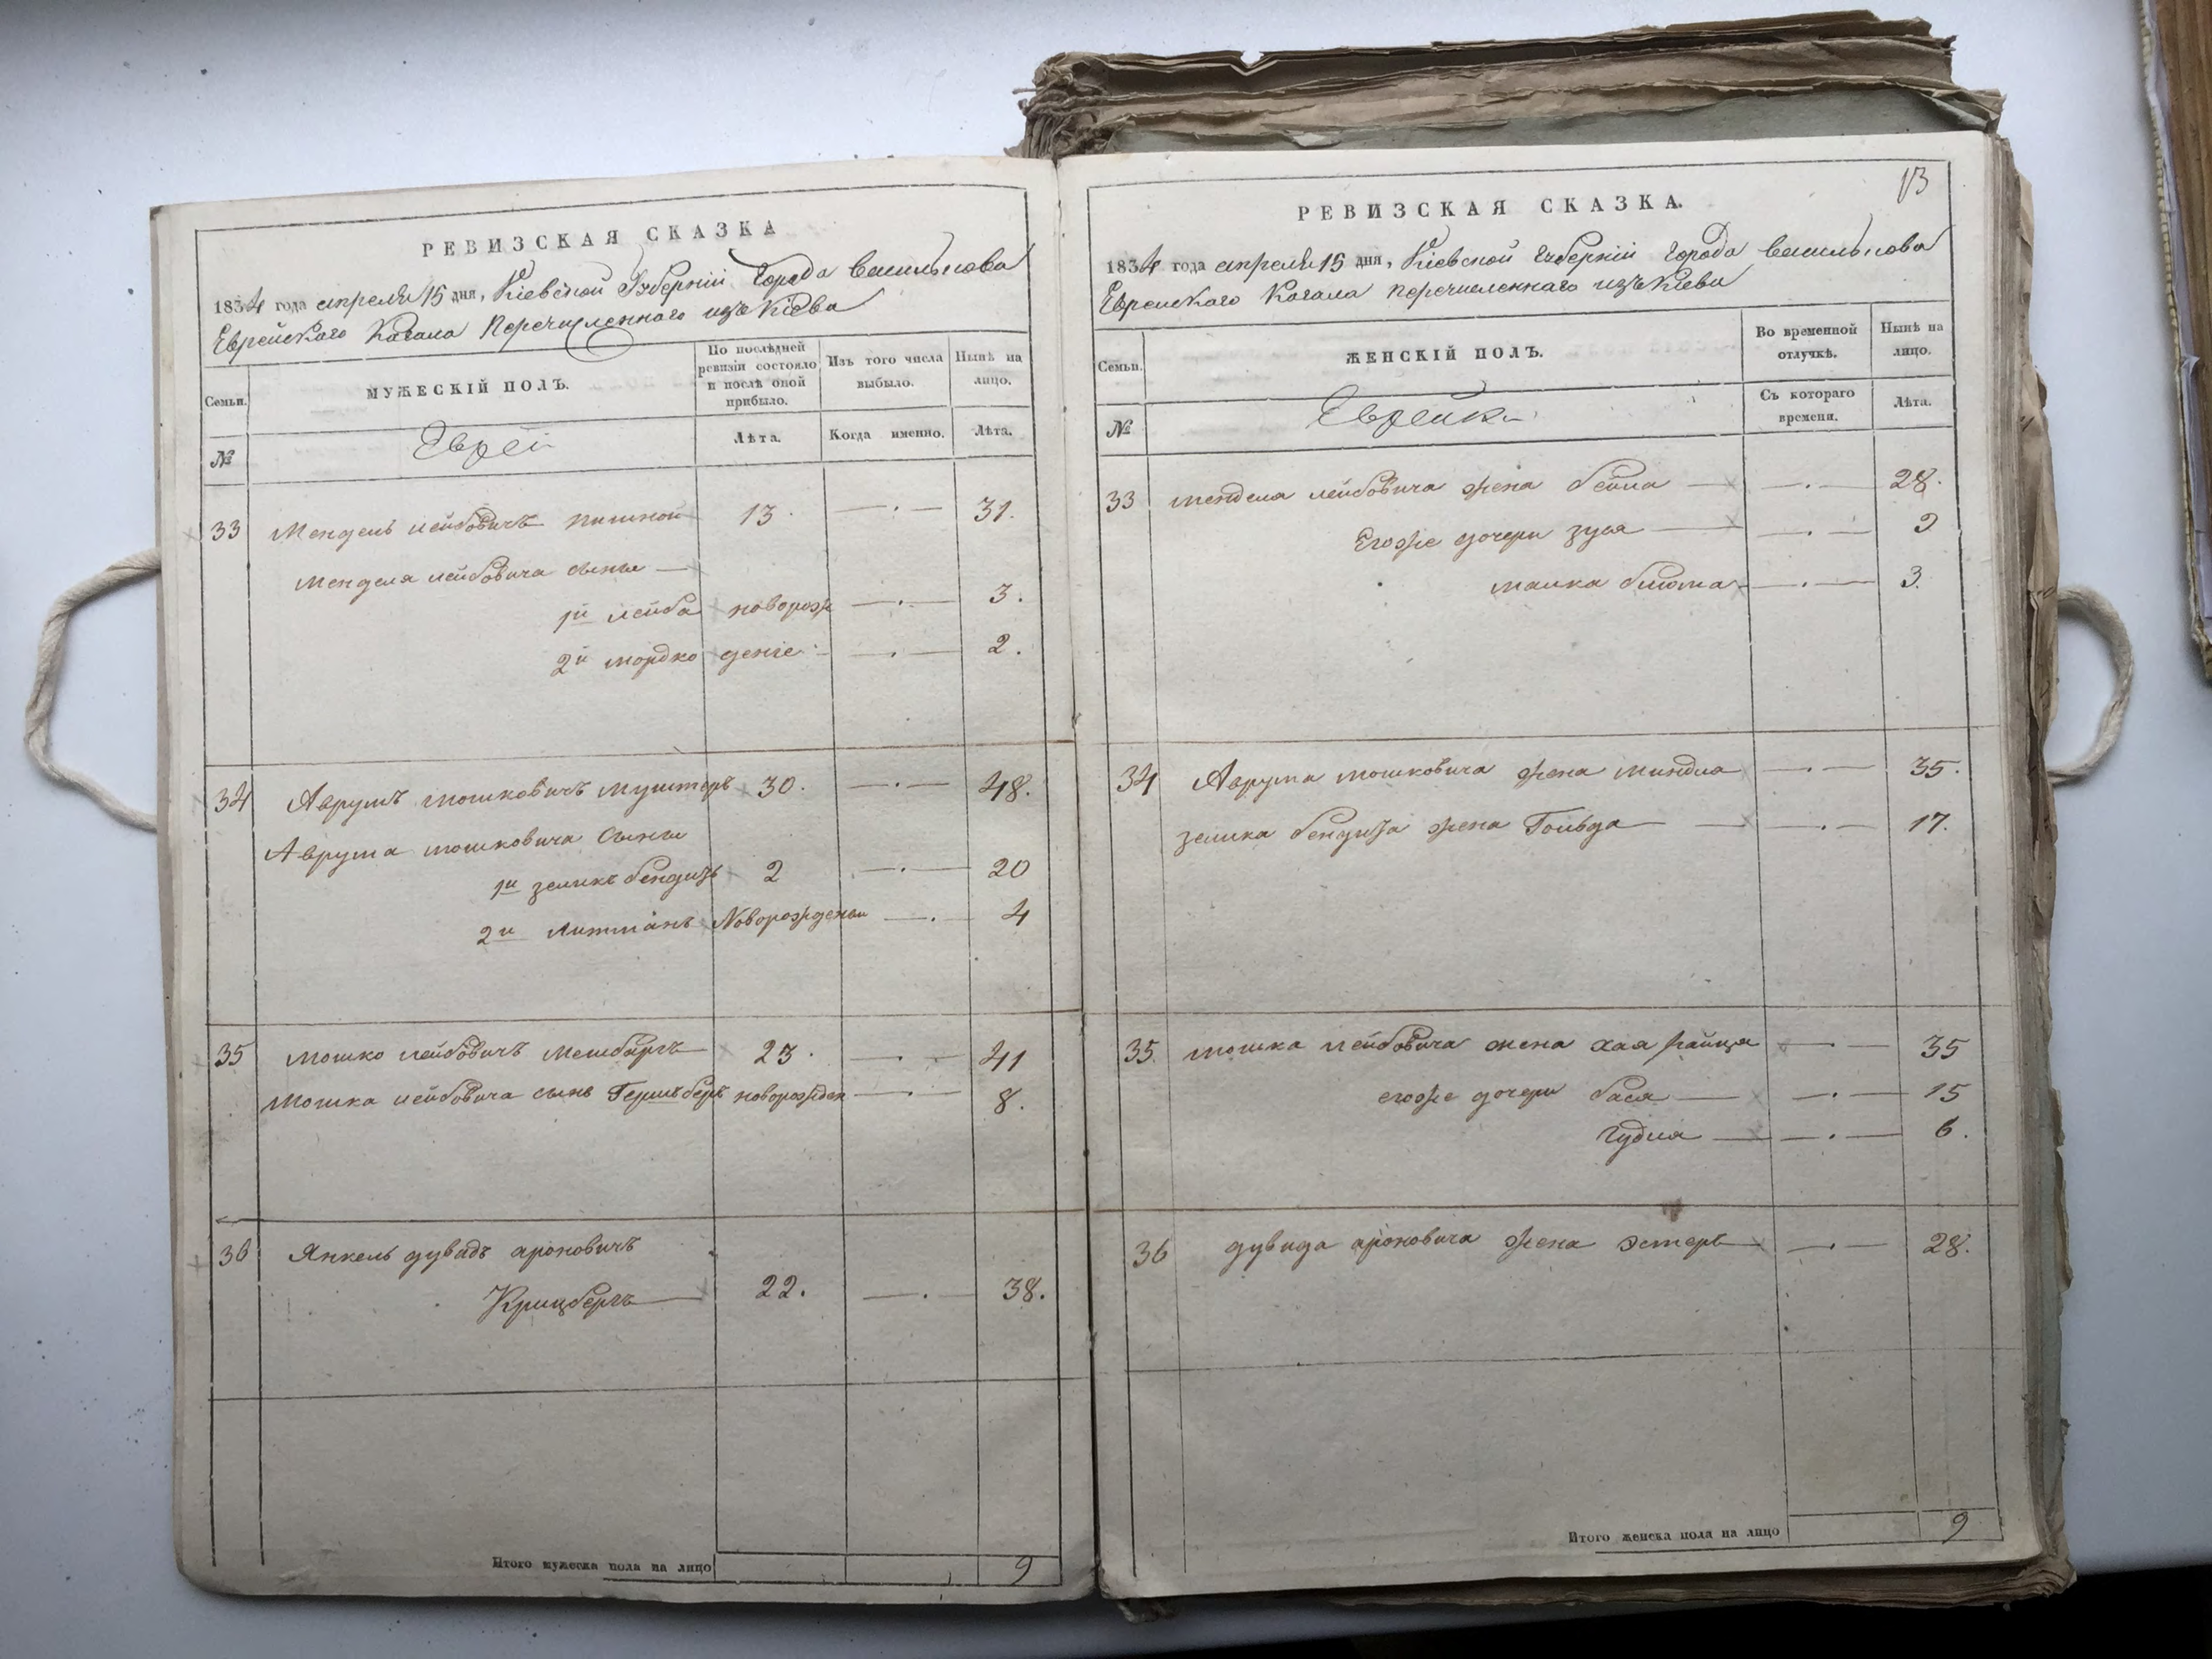 РЕВИЗСКАЯ СКАЗКА
1834 года апреля 15 дня, Кіевской Губерніи Города Василькова
Еврейскаго Кагала Перечисленнаго изъ Кіева
Семьи.
МУЖЕСКІЙ ПОЛЪ.
По послѣдней ревизіи состояло и послѣ оной прибыло.
Изъ того числа выбыло.
Нынѣ на лицо.
№
Еврей
Лѣта.
Когда именно.
Лѣта.
33 Мендель Лейбовичъ 13. —.— 31.
Менделя Лейбовича сыны —
1й Лейба новорож —.— 3.
2й Мордко деніе —.— 2.
34 Аврумъ Мошковичъ Муштеръ 30. —.— 48.
Аврума Мошковича Сыны
1й Зеликъ Бендитъ 2 —.— 20
2й Литманъ Новорожденны —.— 4
35 Мошко Лейбовичъ 23. —.— 41
Мошка Лейбовича сынъ Гершъ Беръ новорожден —.— 8.
36 Янкель Дувидъ Ароновичъ
Крицбергъ — 22. —.— 38.
Итого мужеска пола на лицо 9
13
РЕВИЗСКАЯ СКАЗКА.
1834 года апреля 15 дня, Кіевской Губерніи Города Василькова
Еврейскаго Кагала Перечисленнаго изъ Кіева
Семьи.
ЖЕНСКІЙ ПОЛЪ.
Во временной отлучкѣ.
Нынѣ на лицо.
№
Еврейки
Съ котораго времени.
Лѣта.
33 Менделя Лейбовича жена Бейла — —.— 28.
Егоже дочери Зуся — —.— 9
Малка Блюма —.— 3.
34 Аврума Мошковича жена Миндля —.— 35.
Зелика Бендита жена Гольда — —.— 17.
35. Мошка Лейбовича жена Хая Райца —.— 35
егоже дочери Бася — —.— 15
Гудля — —.— 6.
36 Дувида Ароновича жена Эстеръ —.— 28.
Итого женска пола на лицо 9